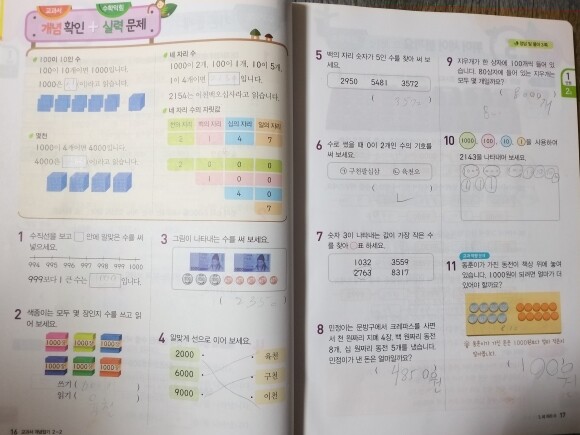 교과서 수학익힘
개념 확인 + 실력 문제
100이 10인 수
100이 10개이면 1000입니다.
1000은 (이)라고 읽습니다.
몇천
1000이 4개이면 4000입니다.
4000은 (이)라고 읽습니다.
네 자리 수
1000이 2개, 100이 1개, 10이 5개,
1이 4개이면 입니다.
2154는 이천백오십사라고 읽습니다.
네 자리 수의 자릿값
천의 자리 백의 자리 십의 자리 일의 자리
2 1 4 7
2 0 0 0
1 0 0
4 0
7
1 수직선을 보고 □ 안에 알맞은 수를 써
넣으세요.
994 995 996 997 998 999 1000
999보다 1 큰 수는 입니다.
2 색종이는 모두 몇 장인지 수를 쓰고 읽
어 보세요.
1000 1000 1000
1000 1000 1000
쓰기 (
읽기 (
3 그림이 나타내는 수를 써 보세요.
( )
4 알맞게 선으로 이어 보세요.
2000 육천
6000 구천
9000 이천
16 교과서 개념잡기 2-2
5 백의 자리 숫자가 5인 수를 찾아 써 보
세요.
2950 5481 3572
( 3572 )
6 수로 썼을 때 0이 2개인 수의 기호를
써 보세요.
㉠ 구천팔십삼 ㉡ 육천오
( )
7 숫자 3이 나타내는 값이 가장 작은 수
를 찾아 □표 하세요.
1032 3559
2763 8317
8 민정이는 문방구에서 크레파스를 사면
서 천 원짜리 지폐 4장, 백 원짜리 동전
8개, 십 원짜리 동전 5개를 냈습니다.
민정이가 낸 돈은 얼마일까요?
( )
9 지우개가 한 상자에 100개씩 들어 있
습니다. 80상자에 들어 있는 지우개는
모두 몇 개일까요?
( )
10 1000, 100, 10, 1을 사용하여
2143을 나타내어 보세요.
11 동훈이가 가진 동전이 책상 위에 놓여
있습니다. 1000원이 되려면 얼마가 더
있어야 할까요?